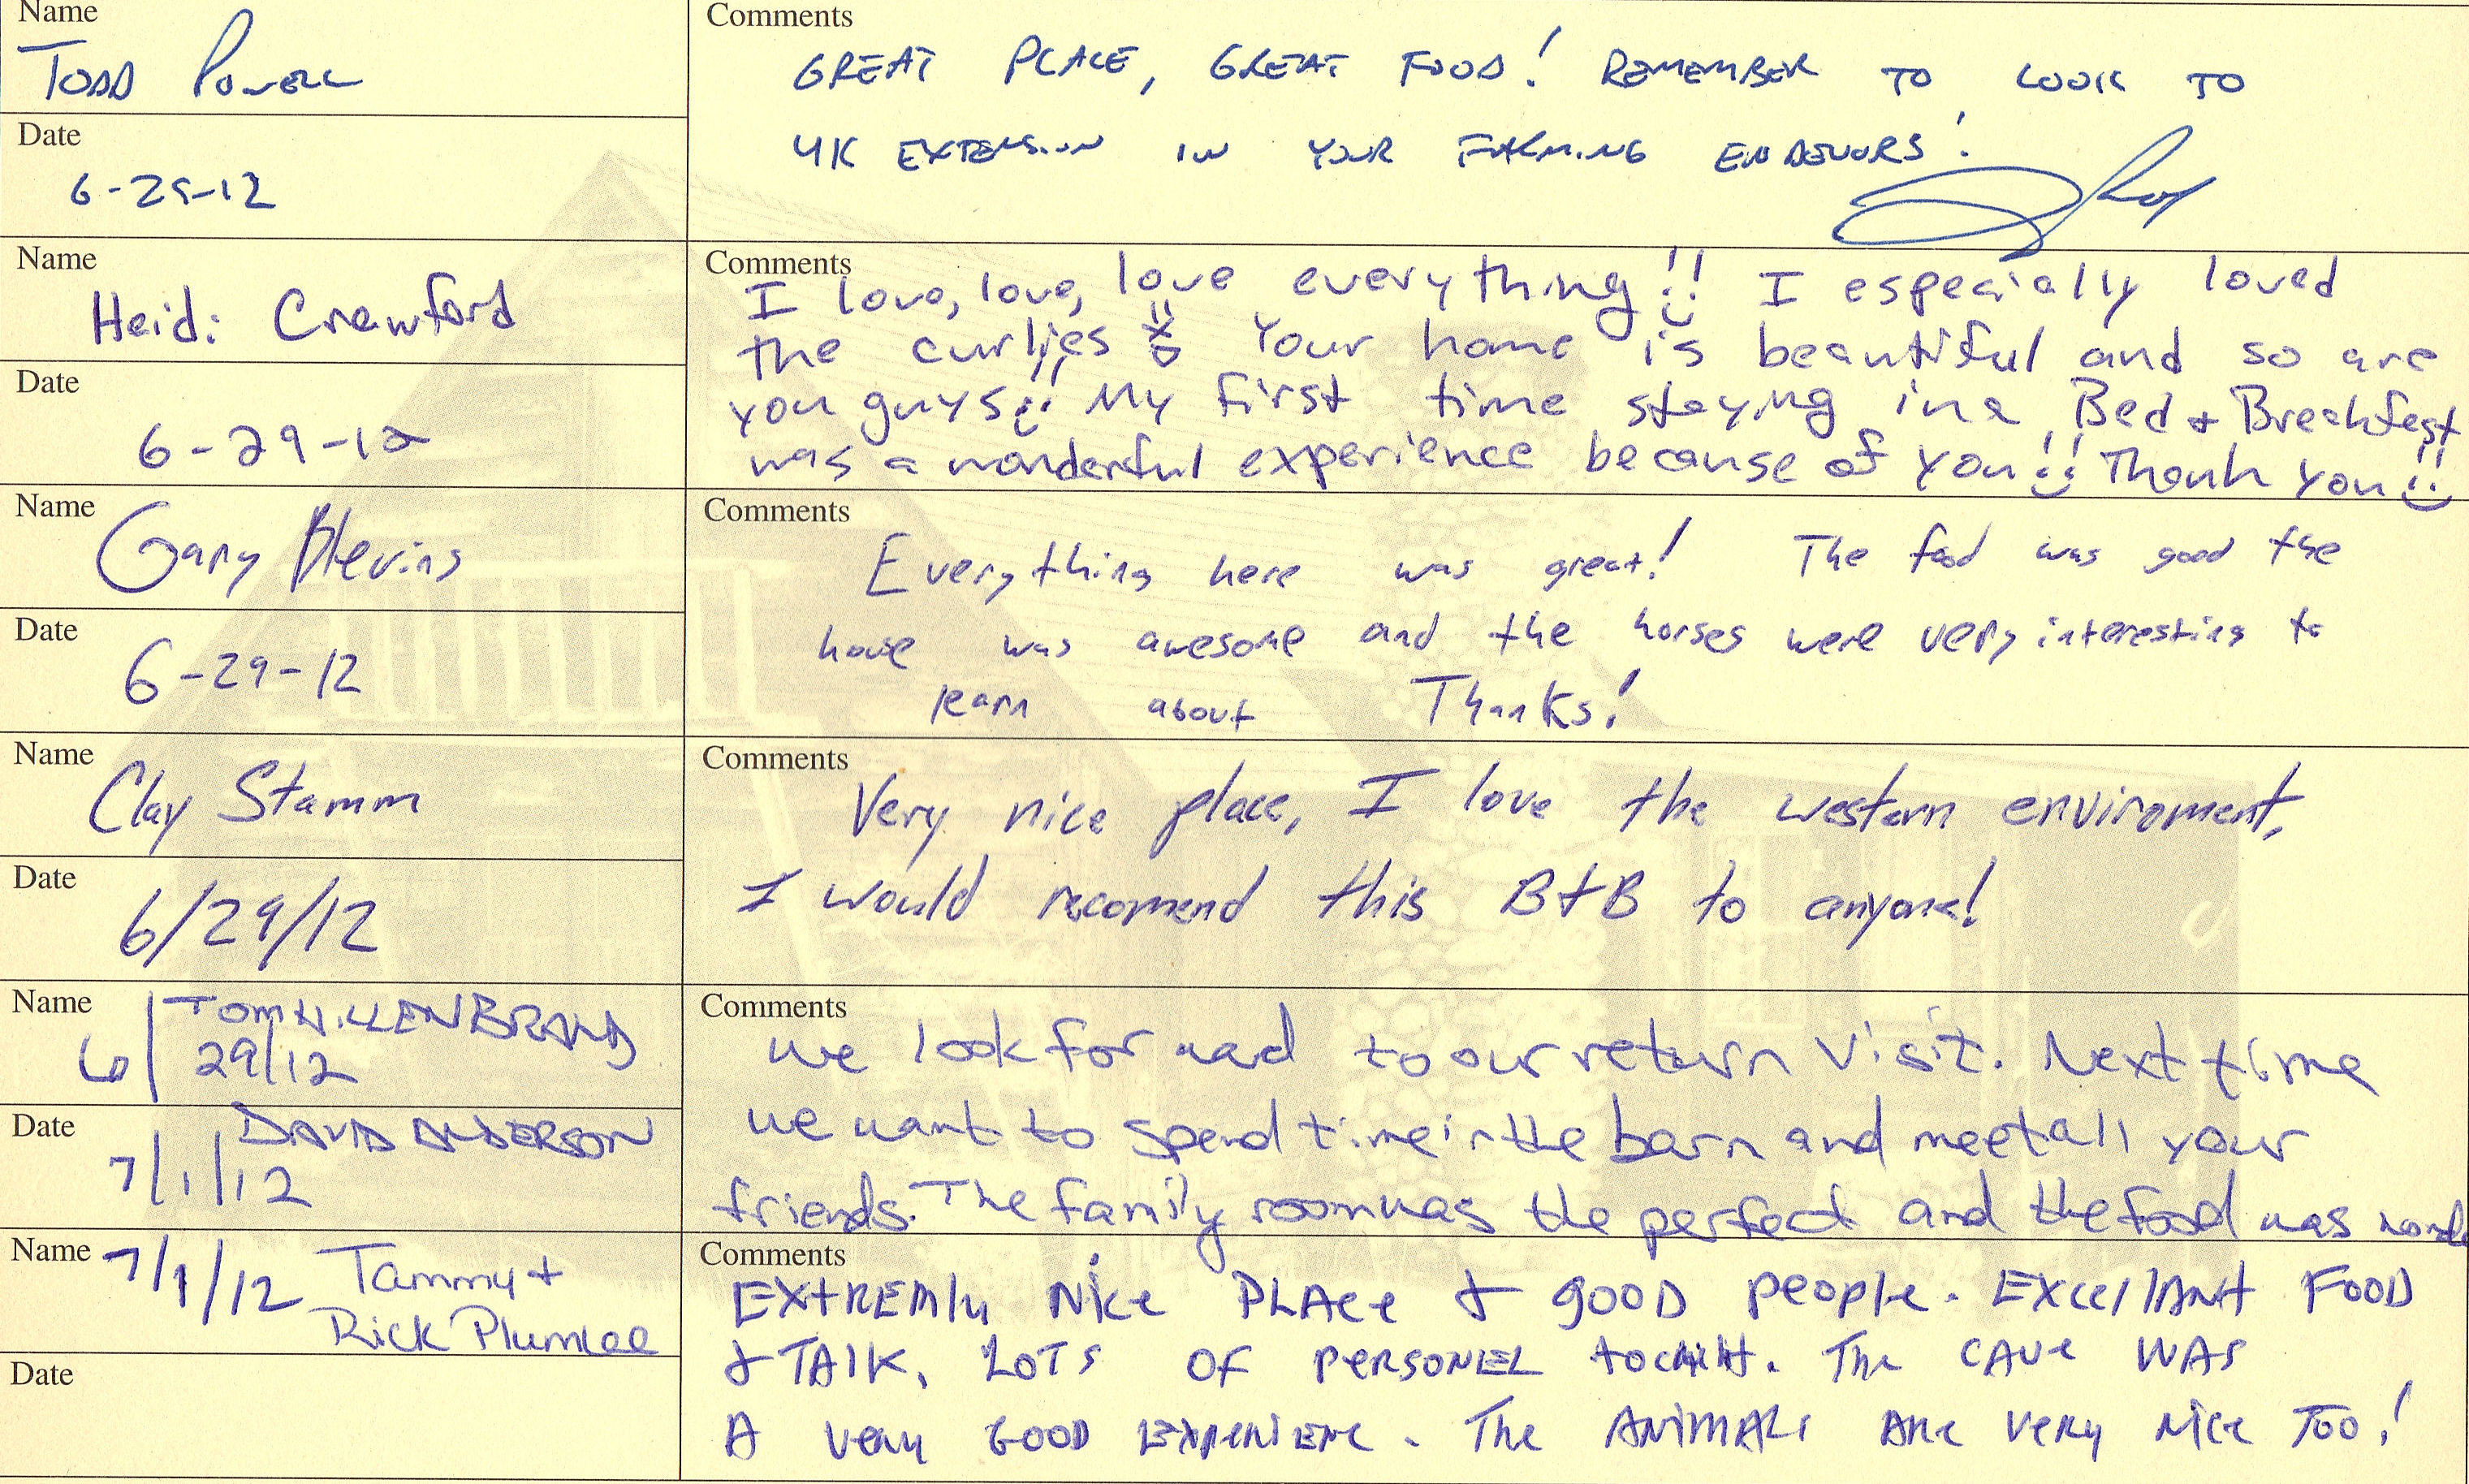 Name
Todd Powell
Comments
GREAT PLACE, GREAT FOOD! REMEMBER TO LOOK TO
UK EXTENSION IN YOUR FARMING ENDEVORS!
Date
6-29-12
Name
Heidi Crawford
Comments
I love, love, love everything!! I especially loved
the curlies Your home is beautiful and so are
you guys!! My first time staying in a Bed + Breakfast
was a wonderful experience because of you!! Thank you!!
Date
6-29-12
Name
Gary Blevins
Comments
Everything here was great! The food was good the
house was awesome and the horses were very interesting to
learn about Thanks!
Date
6-29-12
Name
Clay Stamm
Comments
Very nice place, I love the western enviroment,
I would recomend this B+B to anyone!
Date
6/29/12
Name
TOM HILLENBRAND
6/29/12
Comments
we look forward to our return visit. Next time
we want to spend time in the barn and meet all your
friends. The family room was the perfect and the food was
Date
DAVID ANDERSON
7/1/12
Name
7/1/12 Tammy +
Rick Plumlee
Comments
EXtREMly Nice PLAce & gOOD people. EXcellANt FOOD
& TAlK. LOTS OF PERSONEL. The CAVe WAS
A very GOOD. The ANIMALS ARe very Nice TOO!
Date